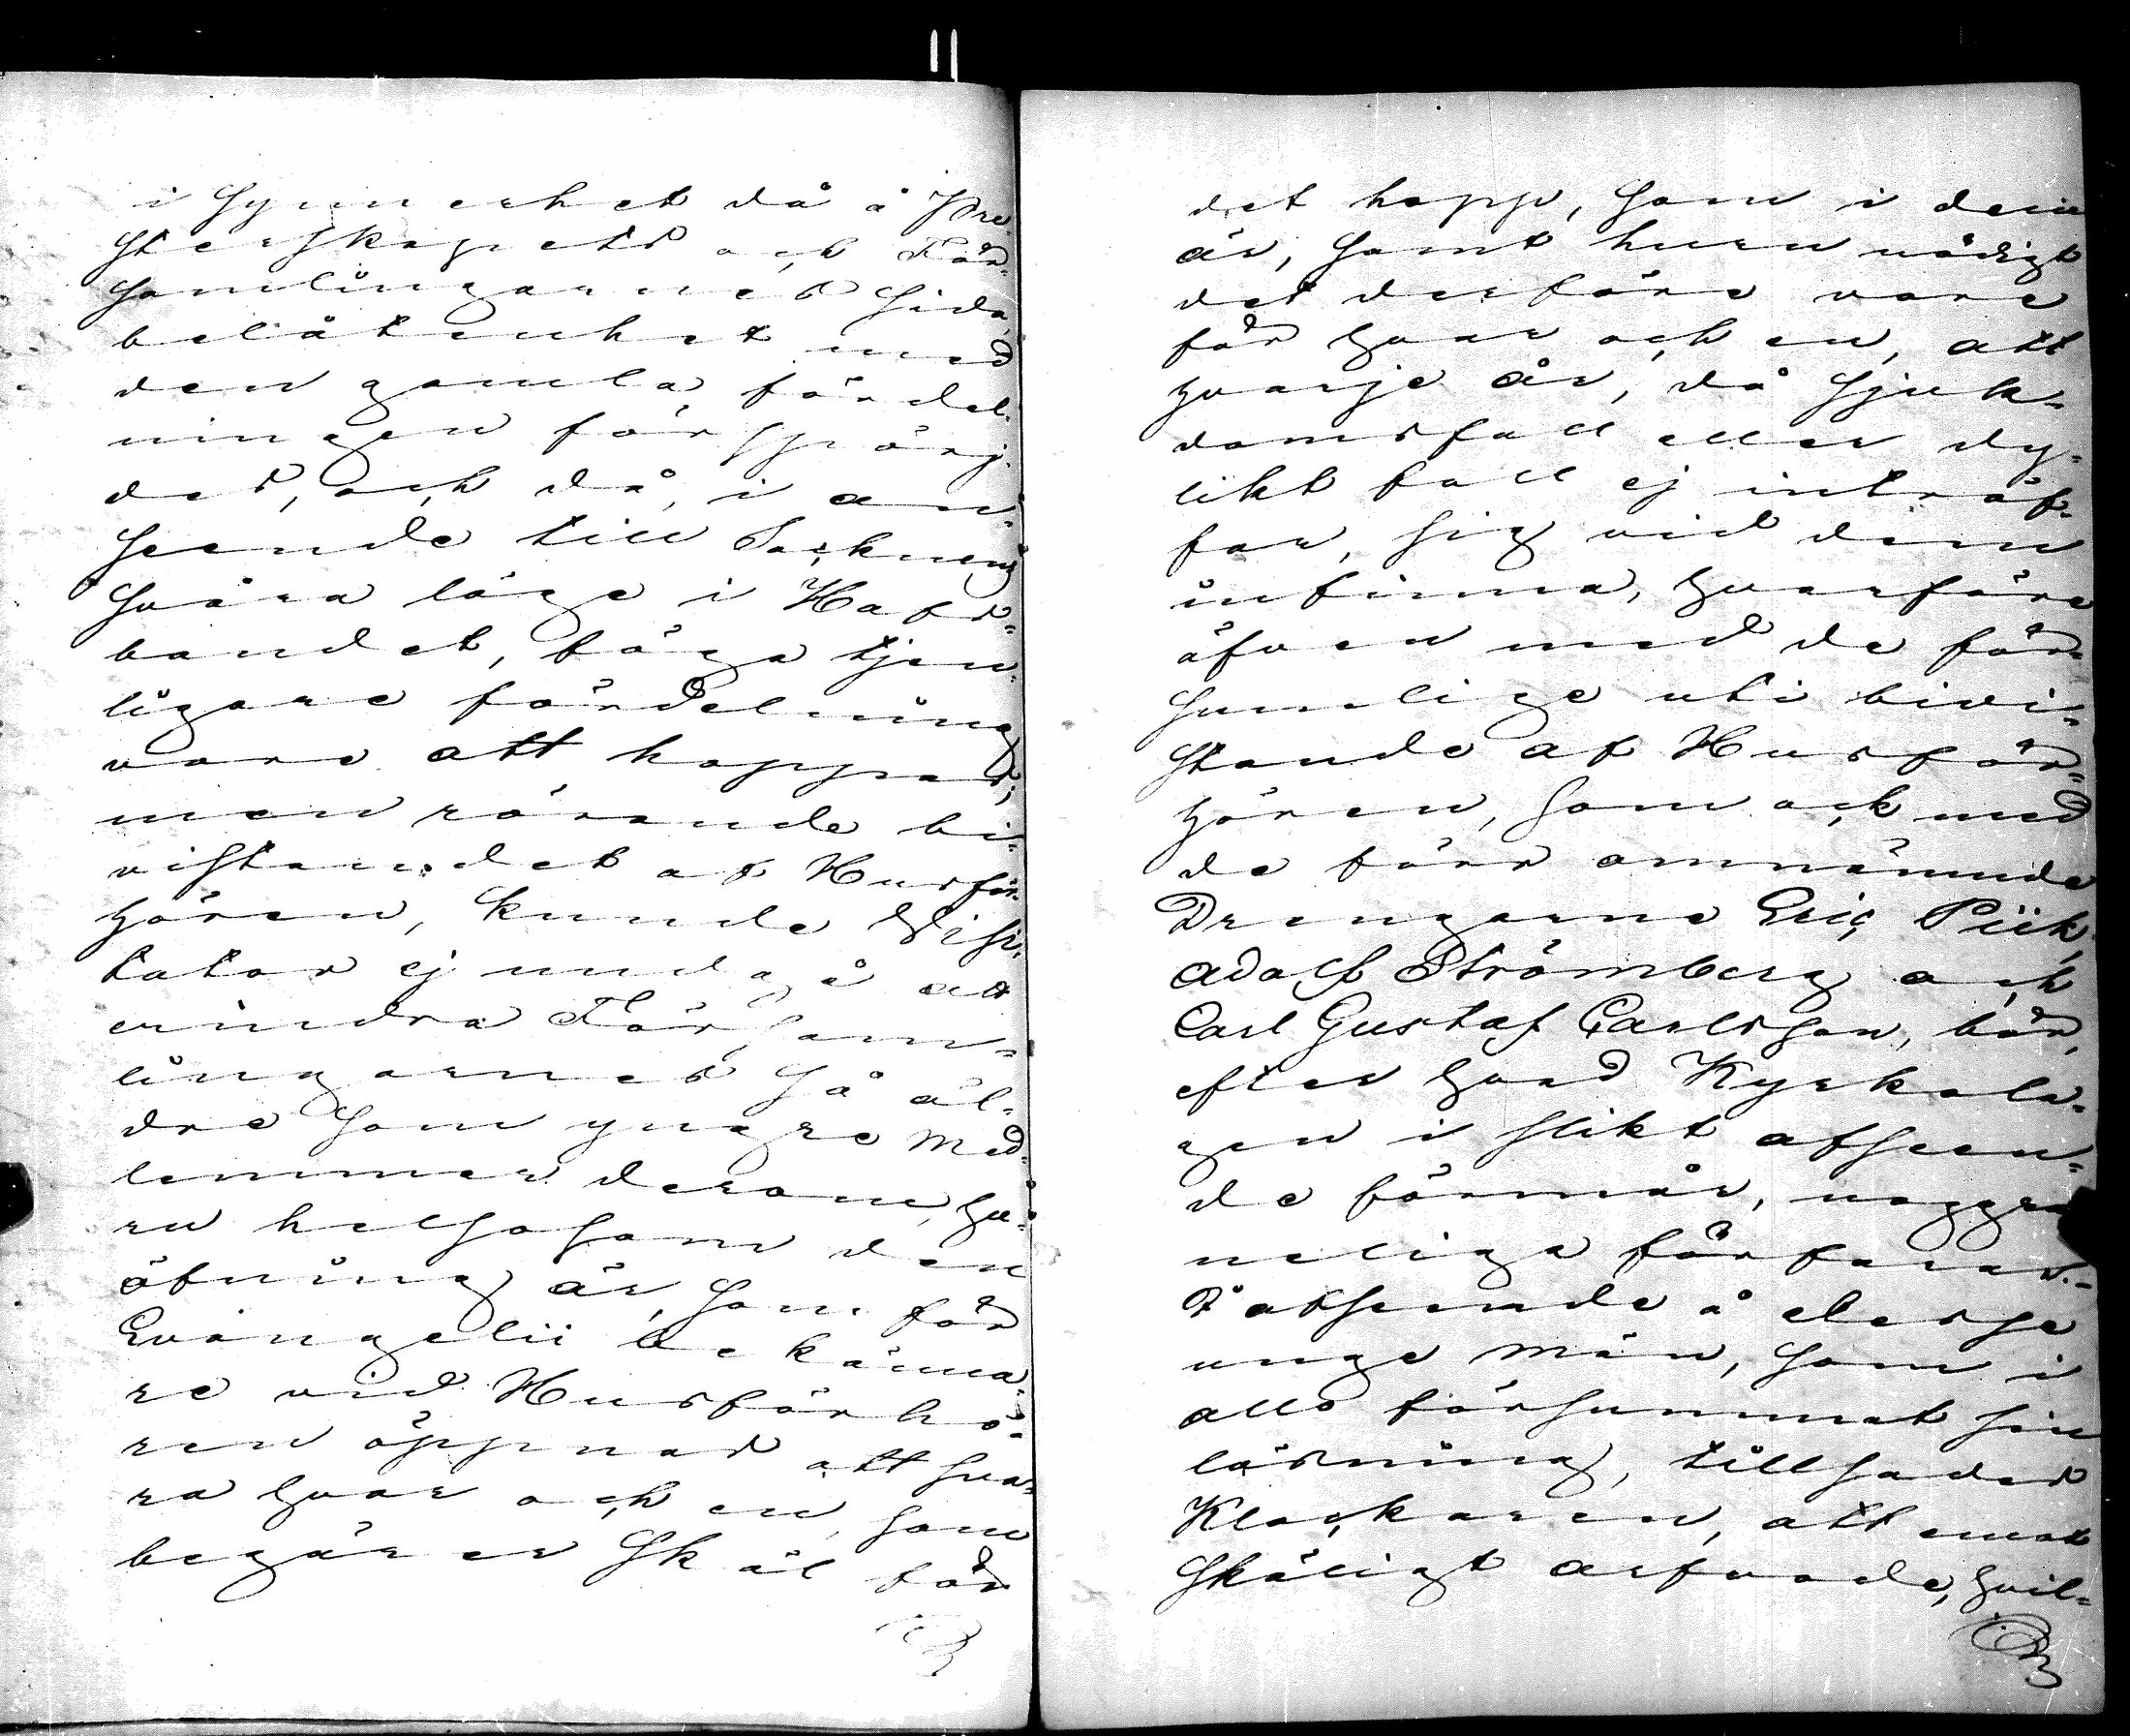 i synnerhet då å Pre-
sterskapets och För-
samlingarnes sida,
belåtenhet med
den gamla fördel-
ningen försporj-
des, och då, i an-
seende till Socknens
svåra läge i Hafs-
bandet, föga tjen-
ligare fördelning
vore att hoppas;
men rörande bi-
vistandet af Husför-
hören, kunde Visi-
tator ej undgå att
erindra Församm-
lingarnes så äl-
dre som yngre Med-
lemmar derom, hu-
ru helsosam den
öfning är, som för
Evangelii bekänna-
re vid Husförhö-
ren öppnas att sva-
ra hvar och en, som
begärer skäl för
det hopp, som i dem
är, samt huru nödigt
det derföre vore
för hvar och en, att
hvarje år, då sjuk-
domsfall eller dy-
likt fall ej inträf-
far, sig vid dem
infinna, hvarföre
äfven med de för-
sumlige uti bivi-
stande af Husför-
hören, som ock med
de förr omnämnde
Drengarne Eric Piik,
Adolf Strömberg och
Carl Gustaf Carlsson, bör,
efter hvad Kyrkola-
gen i slikt afseen-
de förmår, noggran-
neliga förfaras.-
I afseende å desse
unge Män, som i
allo försummat sin
läsning, tillsades
Klockaren, att emot
skäligt arfvode, hvil-